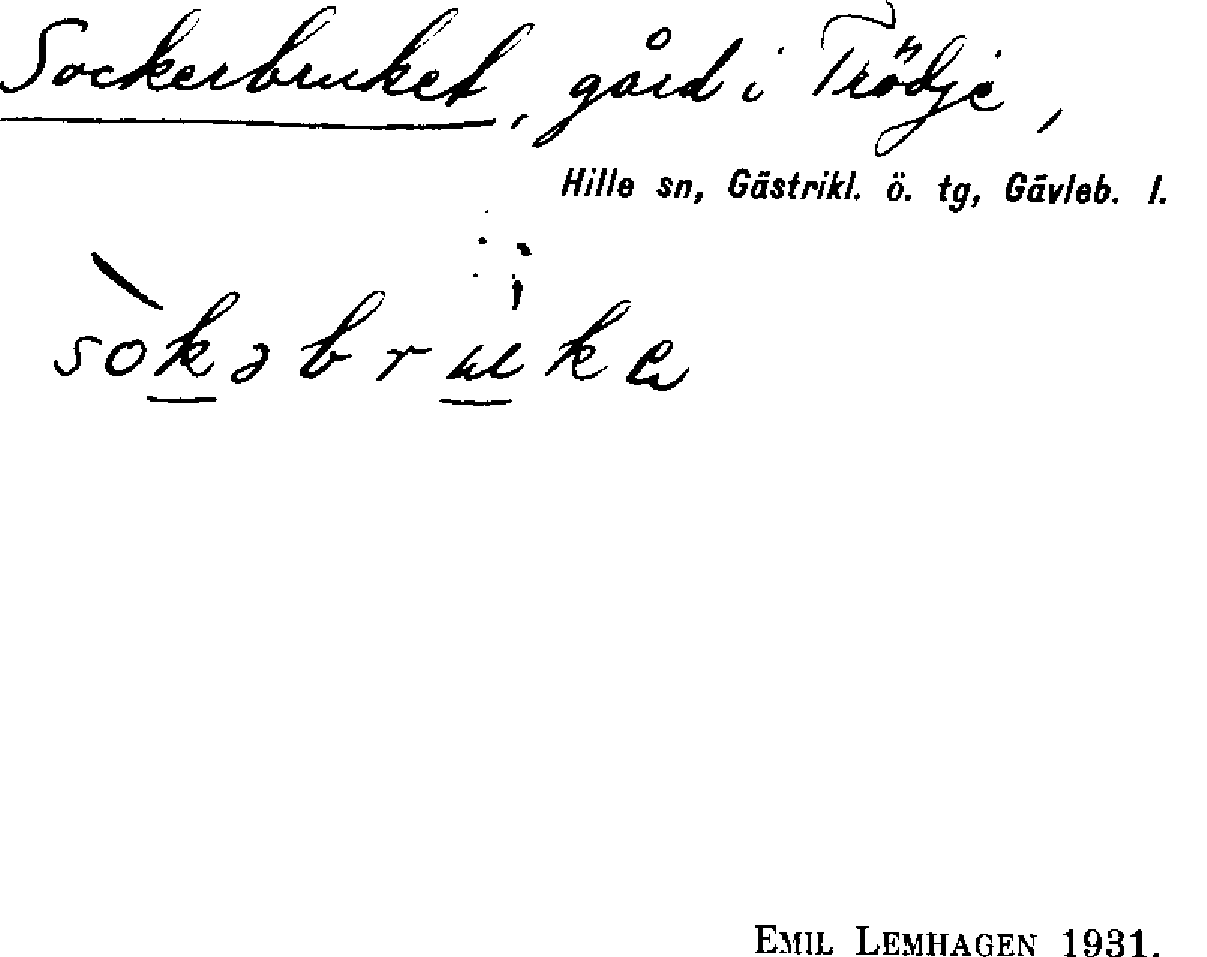 Sockerbruket, gård i Trödje,
Hille sn, Gästrikl. ö. tg, Gävleb. l.
sòkəbrʉke
EMIL LEMHAGEN 1931.